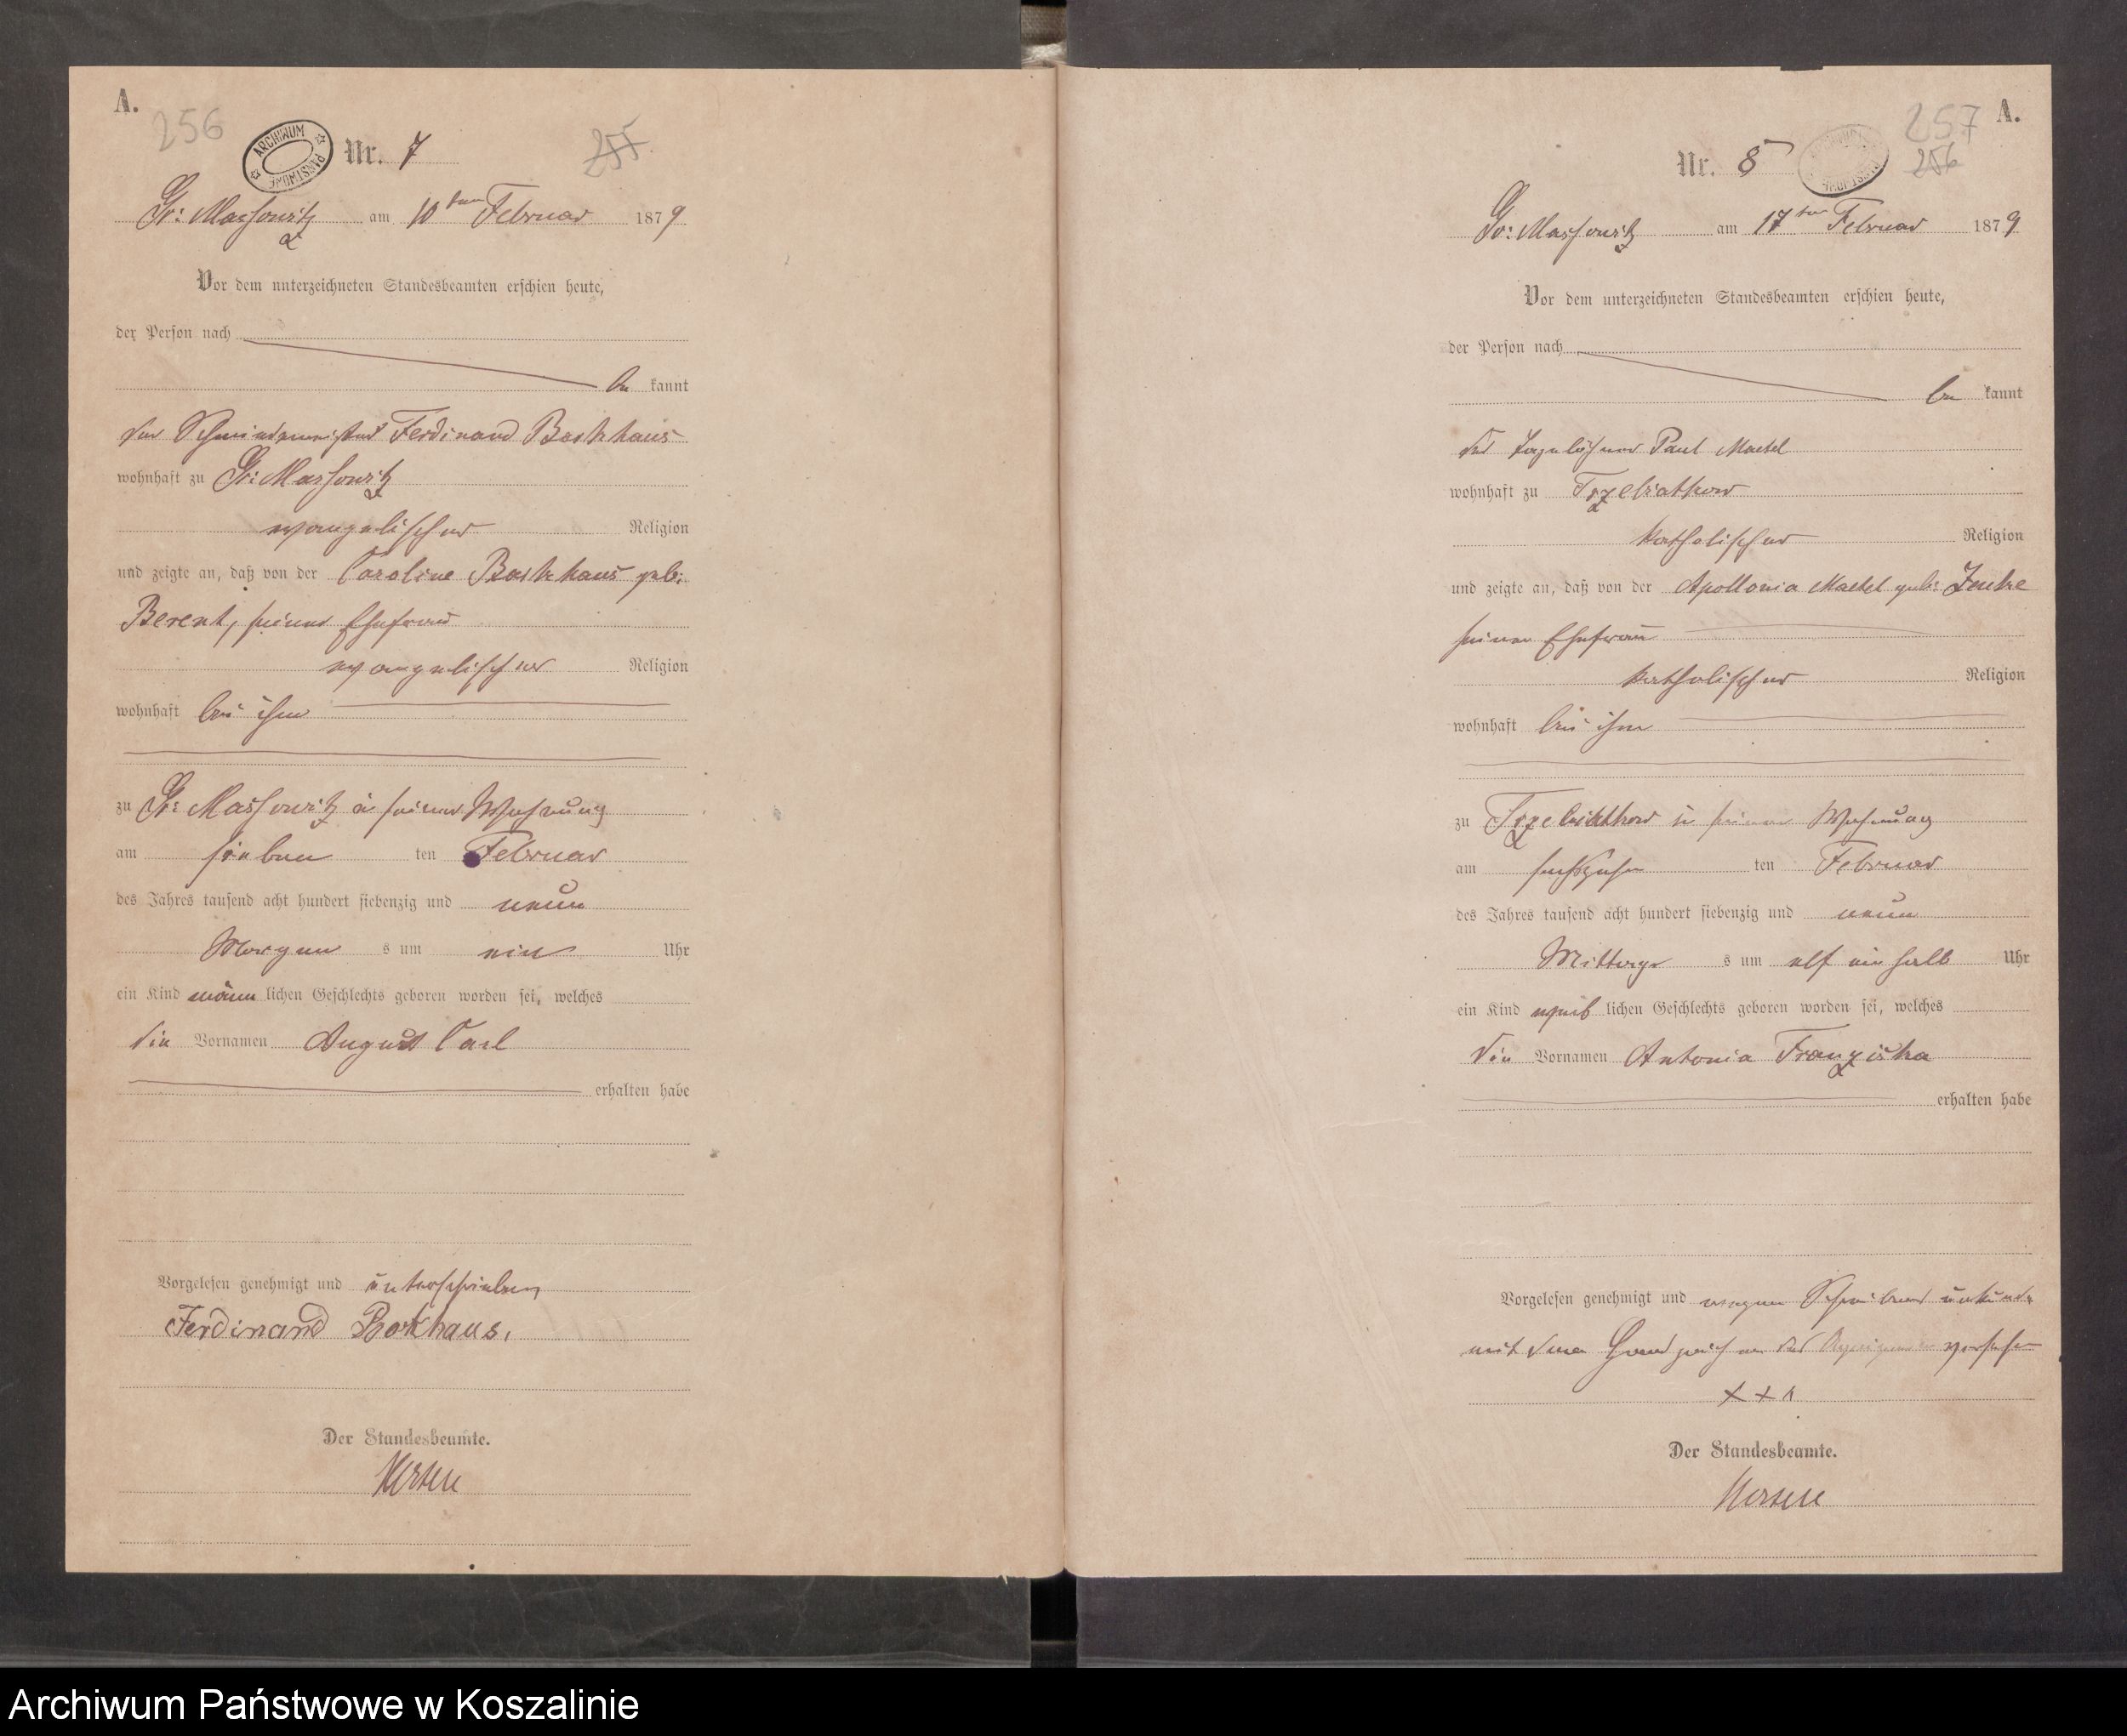 A.
256
ARCHIWUM PAŃSTWOWE
Nr. 7
255
Gr: Massowitz am 10ten Februar 1879
Vor dem unterzeichneten Standesbeamten erschien heute,
der Person nach
be kannt
der Schneidermeister Ferdinand Backhaus
wohnhaft zu Gr: Massowitz
evangelischer Religion
und zeigte an, daß von der Caroline Backhaus geb:
Berent, seiner Ehefrau
evangelischer Religion
wohnhaft bei ihm
zu Gr: Massowitz in seiner Wohnung
am sieben ten Februar
des Jahres tausend acht hundert siebenzig und neun
Morgen s um ein Uhr
ein Kind männ lichen Geschlechts geboren worden sei, welches
die Vornamen August Carl
erhalten habe
Vorgelesen genehmigt und unterschrieben
Ferdinand Backhaus.
Der Standesbeamte.
257 A.
Nr. 8
256
Gr: Massowitz am 17ten Februar 1879
Vor dem unterzeichneten Standesbeamten erschien heute,
der Person nach
be kannt
der Tagelöhner Paul
wohnhaft zu Trzebiatkow
katholischer Religion
und zeigte an, daß von der Apollonia geb:
seiner Ehefrau
katholischer Religion
wohnhaft bei ihm
zu Trzebiatkow in seiner Wohnung
am sechszehn ten Februar
des Jahres tausend acht hundert siebenzig und neun
Mittag s um elf ein halb Uhr
ein Kind weib lichen Geschlechts geboren worden sei, welches
die Vornamen Antonia Franziska
erhalten habe
Vorgelesen genehmigt und wegen Schreibens unkunde
mit dem Handzeichen des Anzeigenden versehen
+ + +
Der Standesbeamte.
Archiwum Państwowe w Koszalinie